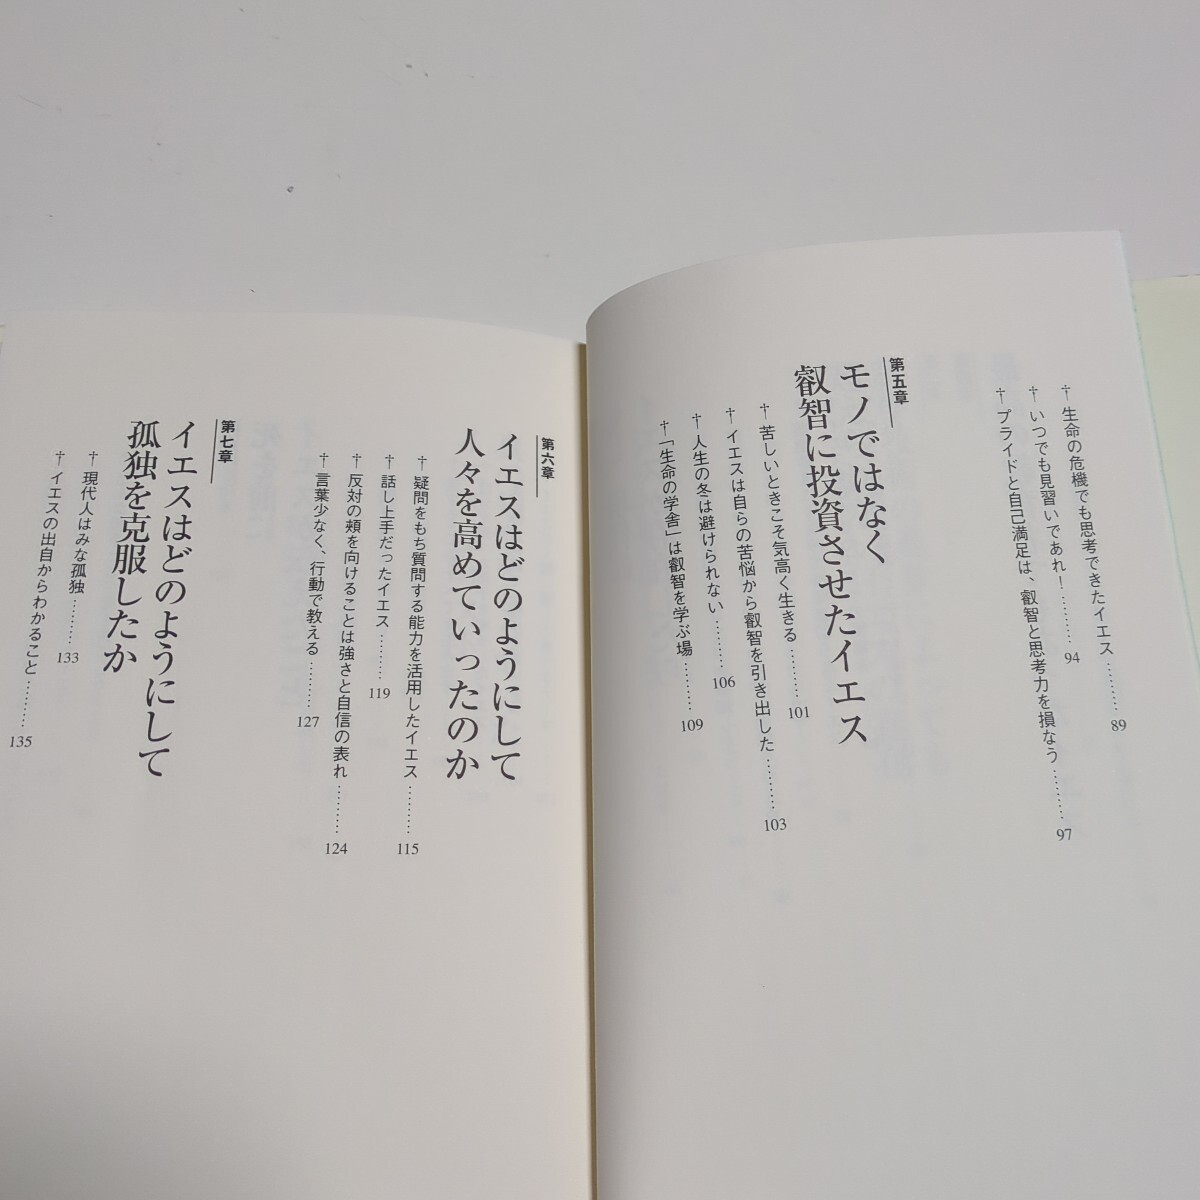 †生命の危機でも思考できたイエス………89
†いつでも見習いであれ！………94
†プライドと自己満足は、叡智と思考力を損なう………97
第五章
モノではなく
叡智に投資させたイエス
†苦しいときこそ気高く生きる………101
†イエスは自らの苦悩から叡智を引き出した………103
†人生の冬は避けられない………106
†「生命の学舎」は叡智を学ぶ場………109
第六章
イエスはどのようにして
人々を高めていったのか
†疑問をもち質問する能力を活用したイエス………115
†話し上手だったイエス………119
†反対の頰を向けることは強さと自信の表れ………124
†言葉少なく、行動で教える………127
第七章
イエスはどのようにして
孤独を克服したか
†現代人はみな孤独………133
†イエスの出自からわかること………135